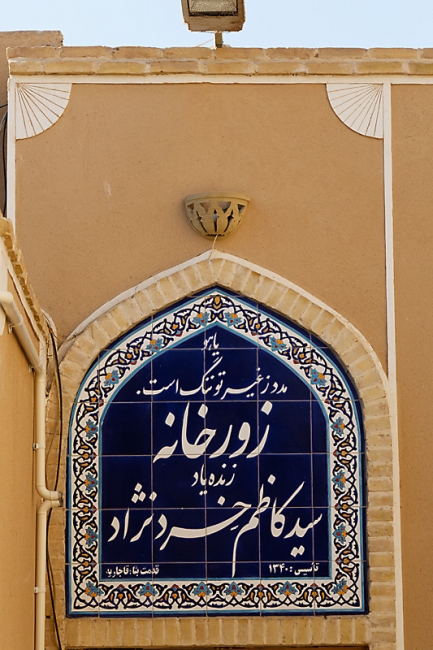 یاهو
مدد ز غیر تو ننگ است.
زورخانه
زنده یاد
سید کاظم خردنژاد
تأسیس: ۱۳۴۰
قدمت بنا: قاجاریه